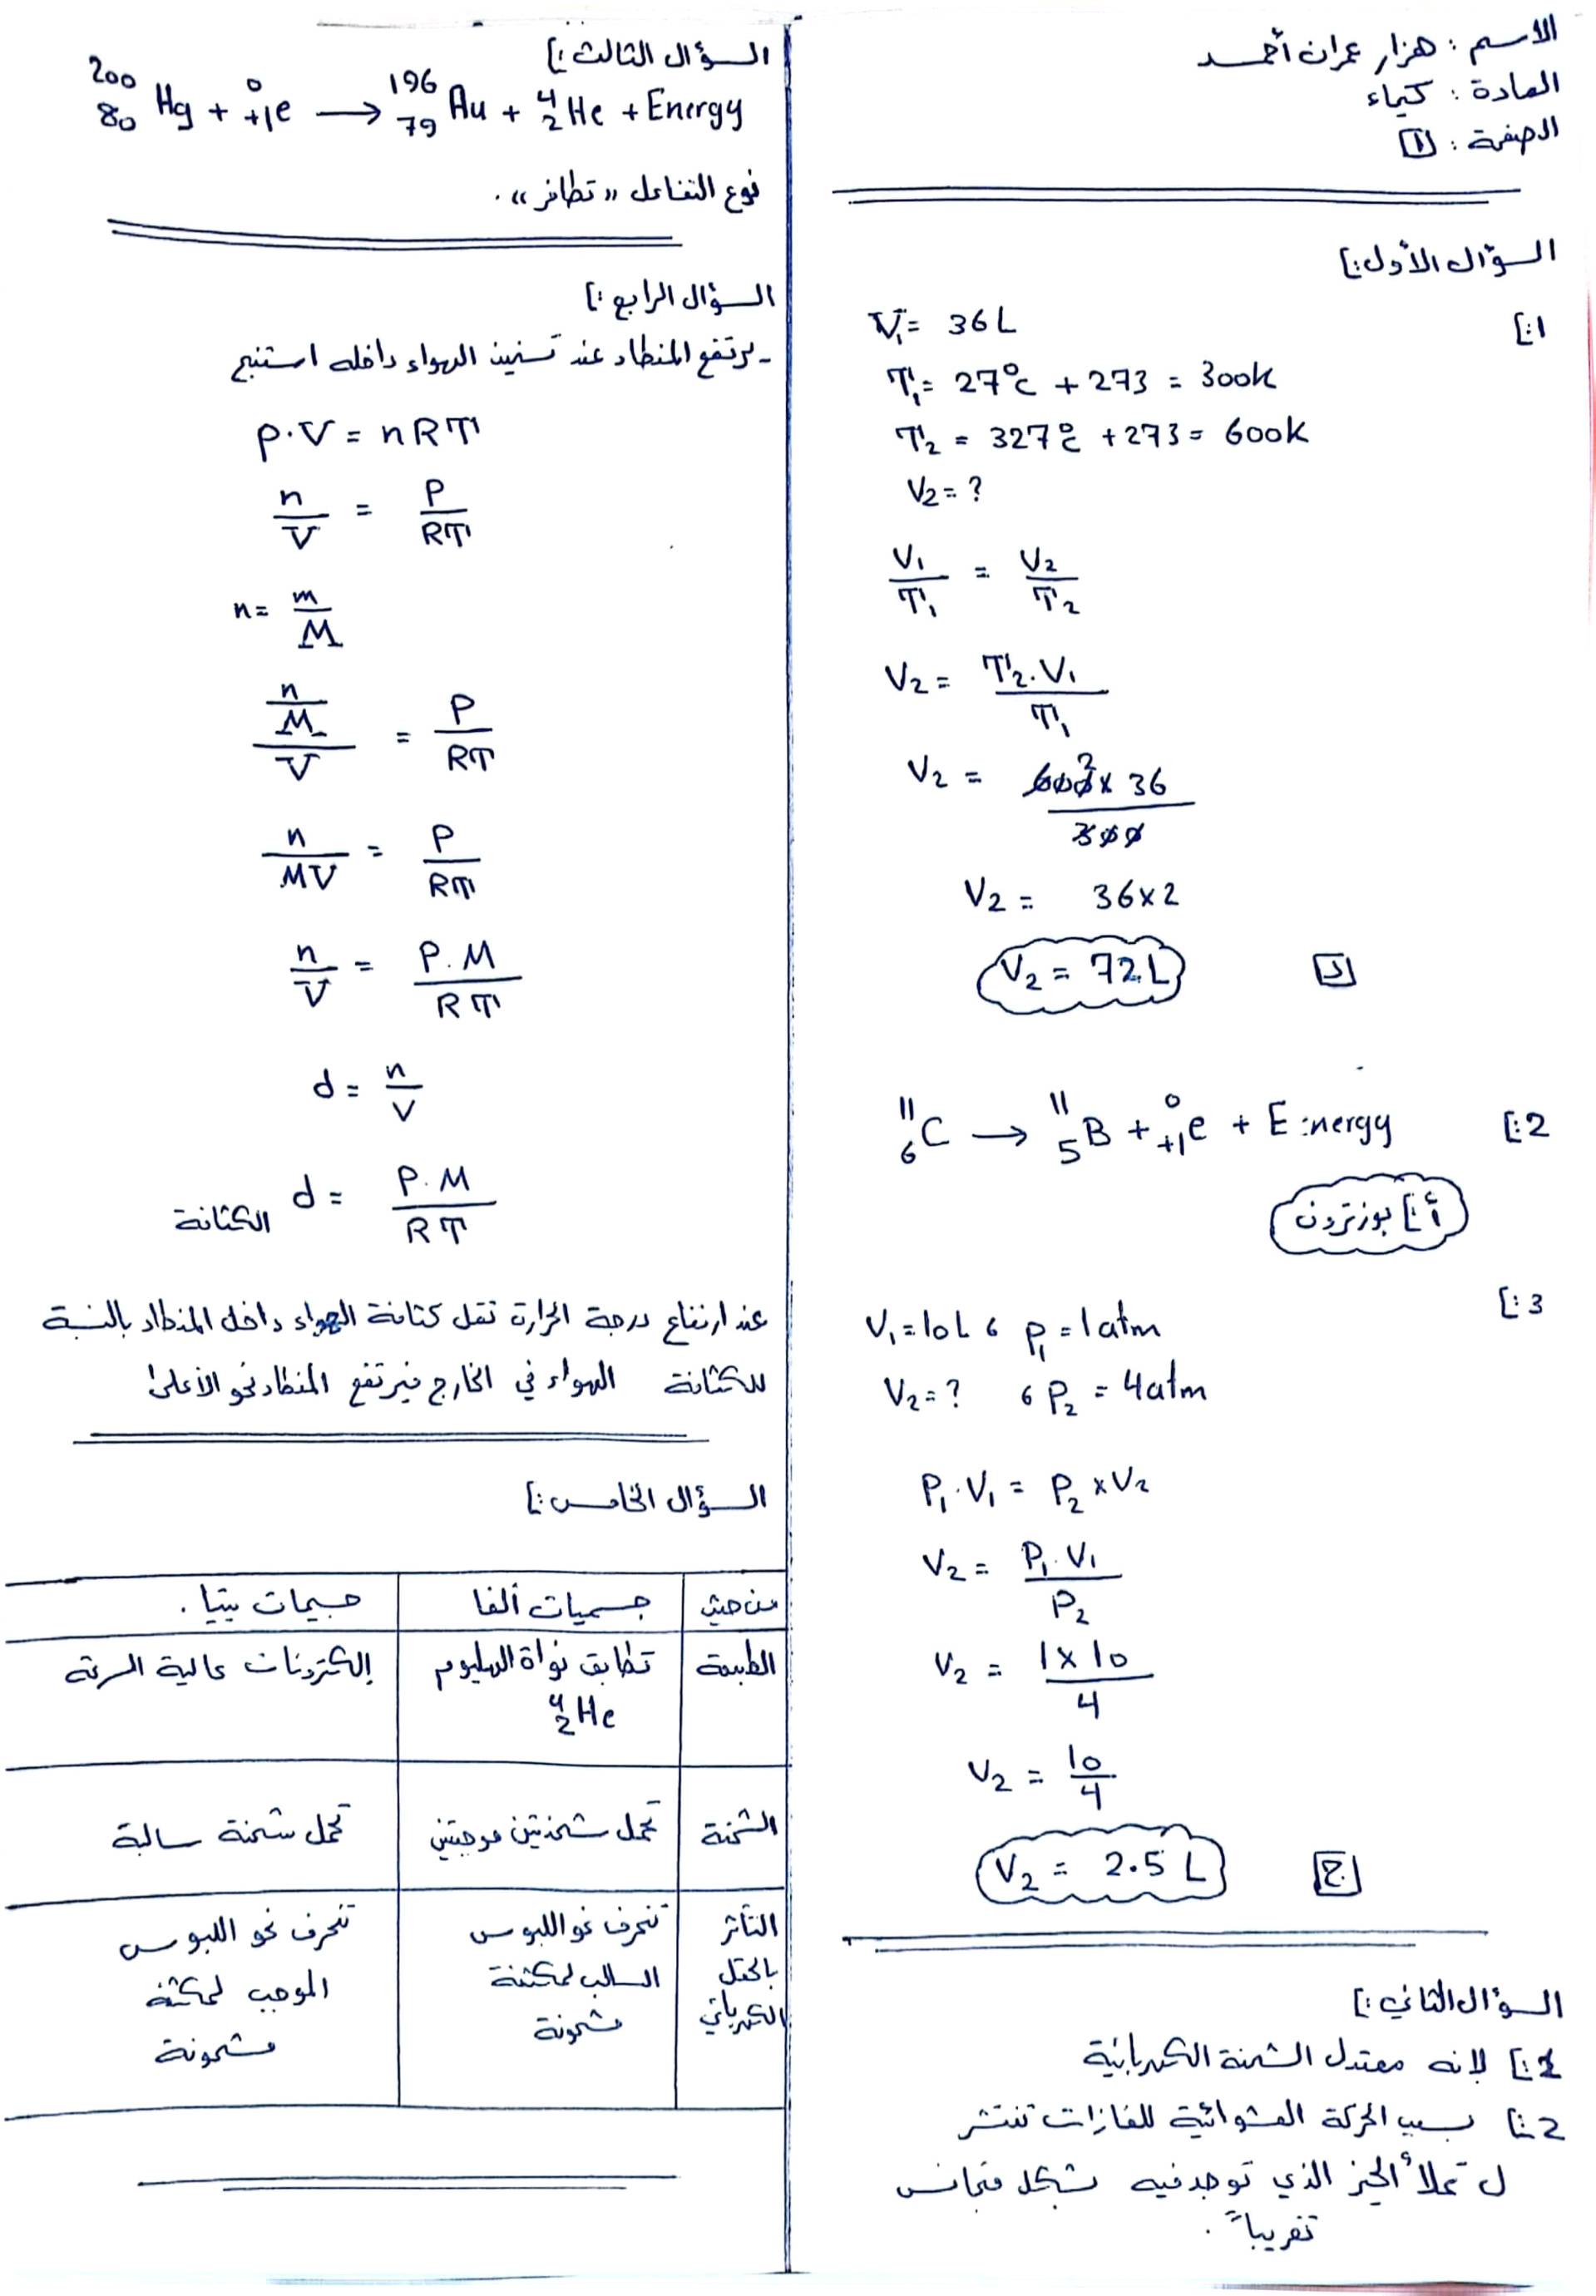 الاسم : هزار عمران أحمد
المادة : كيمياء
الصفحة : 1
السؤال الأول :]
1:]
V₁ = 36 L
T₁ = 27°c + 273 = 300k
T₂ = 327°c + 273 = 600k
V₂ = ?
V₁/T₁ = V₂/T₂
V₂ = T₂.V₁/T₁
V₂ = 600 2 x 36/300
V₂ = 36x2
V₂ = 72 L د
2:] ¹¹₆C → ¹¹₅B + ⁰₊₁e + Energy
أ:] بوزترون
3:]
V₁ = 10L 6 P₁ = 1 atm
V₂ = ? 6 P₂ = 4 atm
P₁.V₁ = P₂ x V₂
V₂ = P₁.V₁/P₂
V₂ = 1 x 10/4
V₂ = 10/4
V₂ = 2.5 L ج
السؤال الثاني :]
1:] لإنه معتدل الشحنة الكهربائية
2:] بسبب الحركة العشوائية للغازات تنتشر
ل تملأ الحيز الذي توجد فيه بشكل متجانس
تقريباً .
السؤال الثالث :]
²⁰⁰₈₀Hg + ⁰₊₁e → ¹⁹⁶₇₉Au + ⁴₂He + Energy
نوع التفاعل " تطافر " .
السؤال الرابع :]
- يرتفع المنطاد عند تسخين الهواء داخله استنتج
P.V = nRT
n/V = P/RT
n = m/M
n/M/V = P/RT
n/MV = P/RT
n/V = P.M/RT
d = n/V
d = P.M/RT الكثافة
عند ارتفاع درجة الحرارة تقل كثافة الهواء داخل المنطاد بالنسبة
للكثافة الهواء في الخارج فيرتفع المنطاد نحو الأعلى
السؤال الخامس :]
من حيث جسميات ألفا جسيمات بيتا .
الطبيعة تطابق نواة الهليوم إلكترونات عالية السرعة
⁴₂He
الشحنة تحمل شحنتين موجبتين تحمل شحنة سالبة
التأثر تنحرف نحو اللبوس تنحرف نحو اللبوس
بالحقل السالب لمكثفة الموجب لمكثفة
الكهربائي مشحونة مشحونة